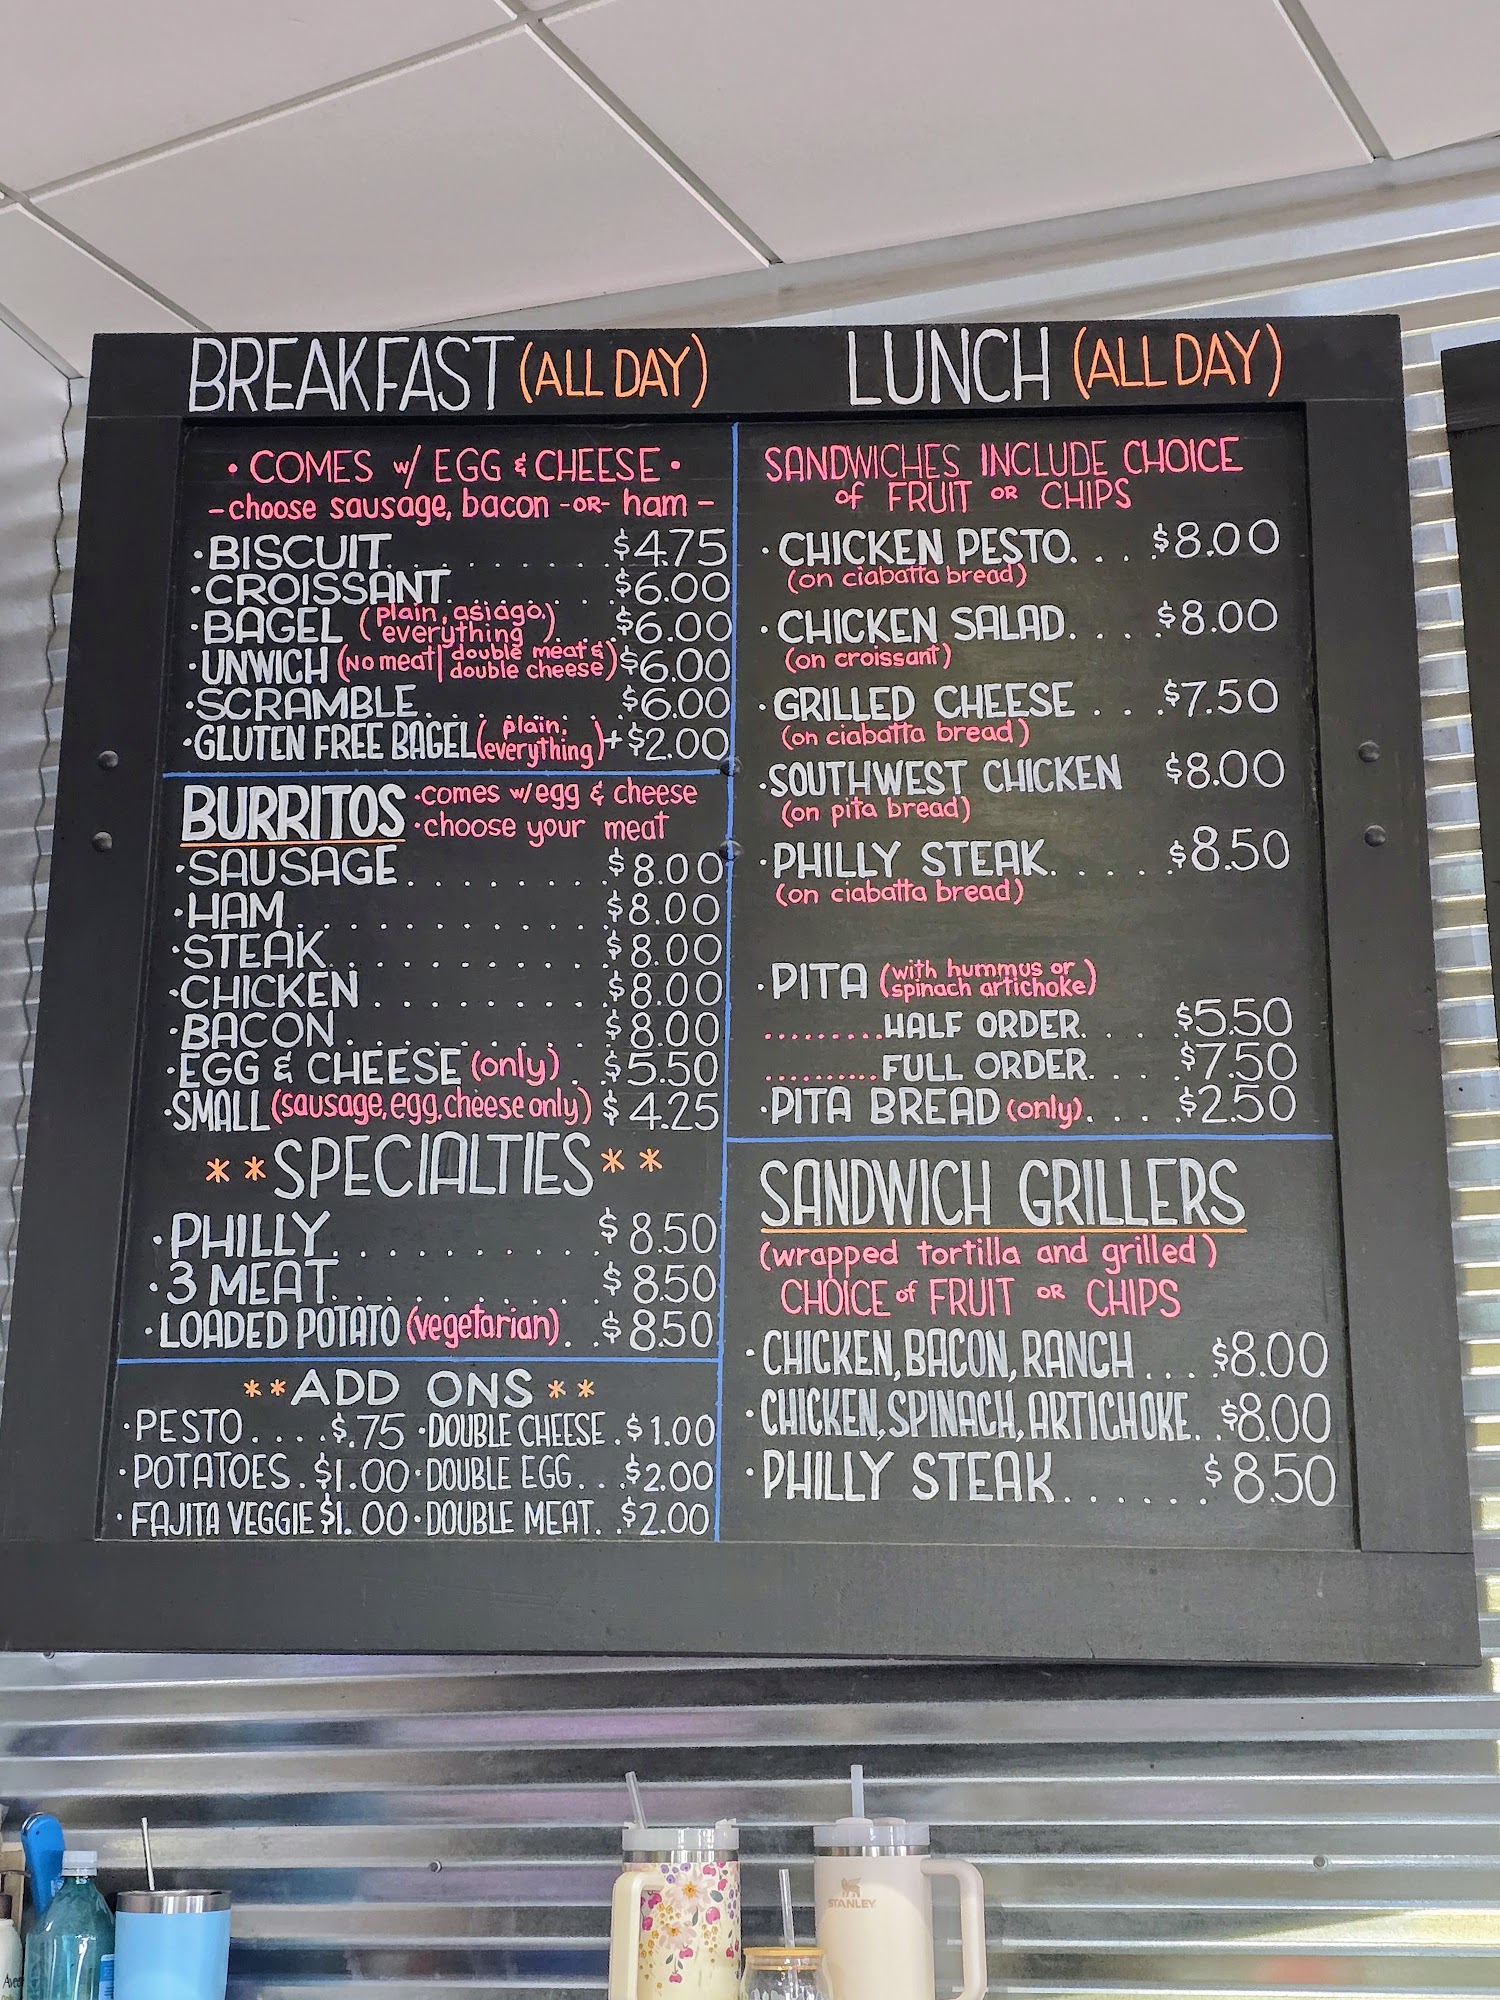 BREAKFAST (ALL DAY)
• COMES w/ EGG & CHEESE •
- choose sausage, bacon -OR- ham -
• BISCUIT. . . . . . . . . $4.75
• CROISSANT. . . . . . . $6.00
• BAGEL (plain, asiago, everything). . . $6.00
• UNWICH (NO meat | double meat & double cheese) $6.00
• SCRAMBLE. . . . . . . $6.00
• GLUTEN FREE BAGEL (plain, everything) + $2.00
BURRITOS • comes w/ egg & cheese
• choose your meat
• SAUSAGE. . . . . . . . $8.00
• HAM. . . . . . . . . . . $8.00
• STEAK. . . . . . . . . . $8.00
• CHICKEN. . . . . . . . $8.00
• BACON. . . . . . . . . $8.00
• EGG & CHEESE (only). . $5.50
• SMALL (sausage, egg, cheese only) $4.25
** SPECIALTIES **
• PHILLY. . . . . . . . . . $8.50
• 3 MEAT. . . . . . . . . . $8.50
• LOADED POTATO (vegetarian). . $8.50
** ADD ONS **
• PESTO. . . . $.75 • DOUBLE CHEESE . $1.00
• POTATOES . $1.00 • DOUBLE EGG. . . $2.00
• FAJITA VEGGIE $1.00 • DOUBLE MEAT. . $2.00
LUNCH (ALL DAY)
SANDWICHES INCLUDE CHOICE
of FRUIT OR CHIPS
• CHICKEN PESTO. . . $8.00
(on ciabatta bread)
• CHICKEN SALAD. . . . $8.00
(on croissant)
• GRILLED CHEESE . . . $7.50
(on ciabatta bread)
• SOUTHWEST CHICKEN $8.00
(on pita bread)
• PHILLY STEAK. . . . . $8.50
(on ciabatta bread)
• PITA (with hummus or spinach artichoke)
. . . . . . . . . HALF ORDER. . . $5.50
. . . . . . . . . . FULL ORDER. . . $7.50
• PITA BREAD (only). . . $2.50
SANDWICH GRILLERS
(wrapped tortilla and grilled)
CHOICE of FRUIT OR CHIPS
• CHICKEN, BACON, RANCH . . . . $8.00
• CHICKEN, SPINACH, ARTICHOKE. . $8.00
• PHILLY STEAK. . . . . . $8.50
STANLEY